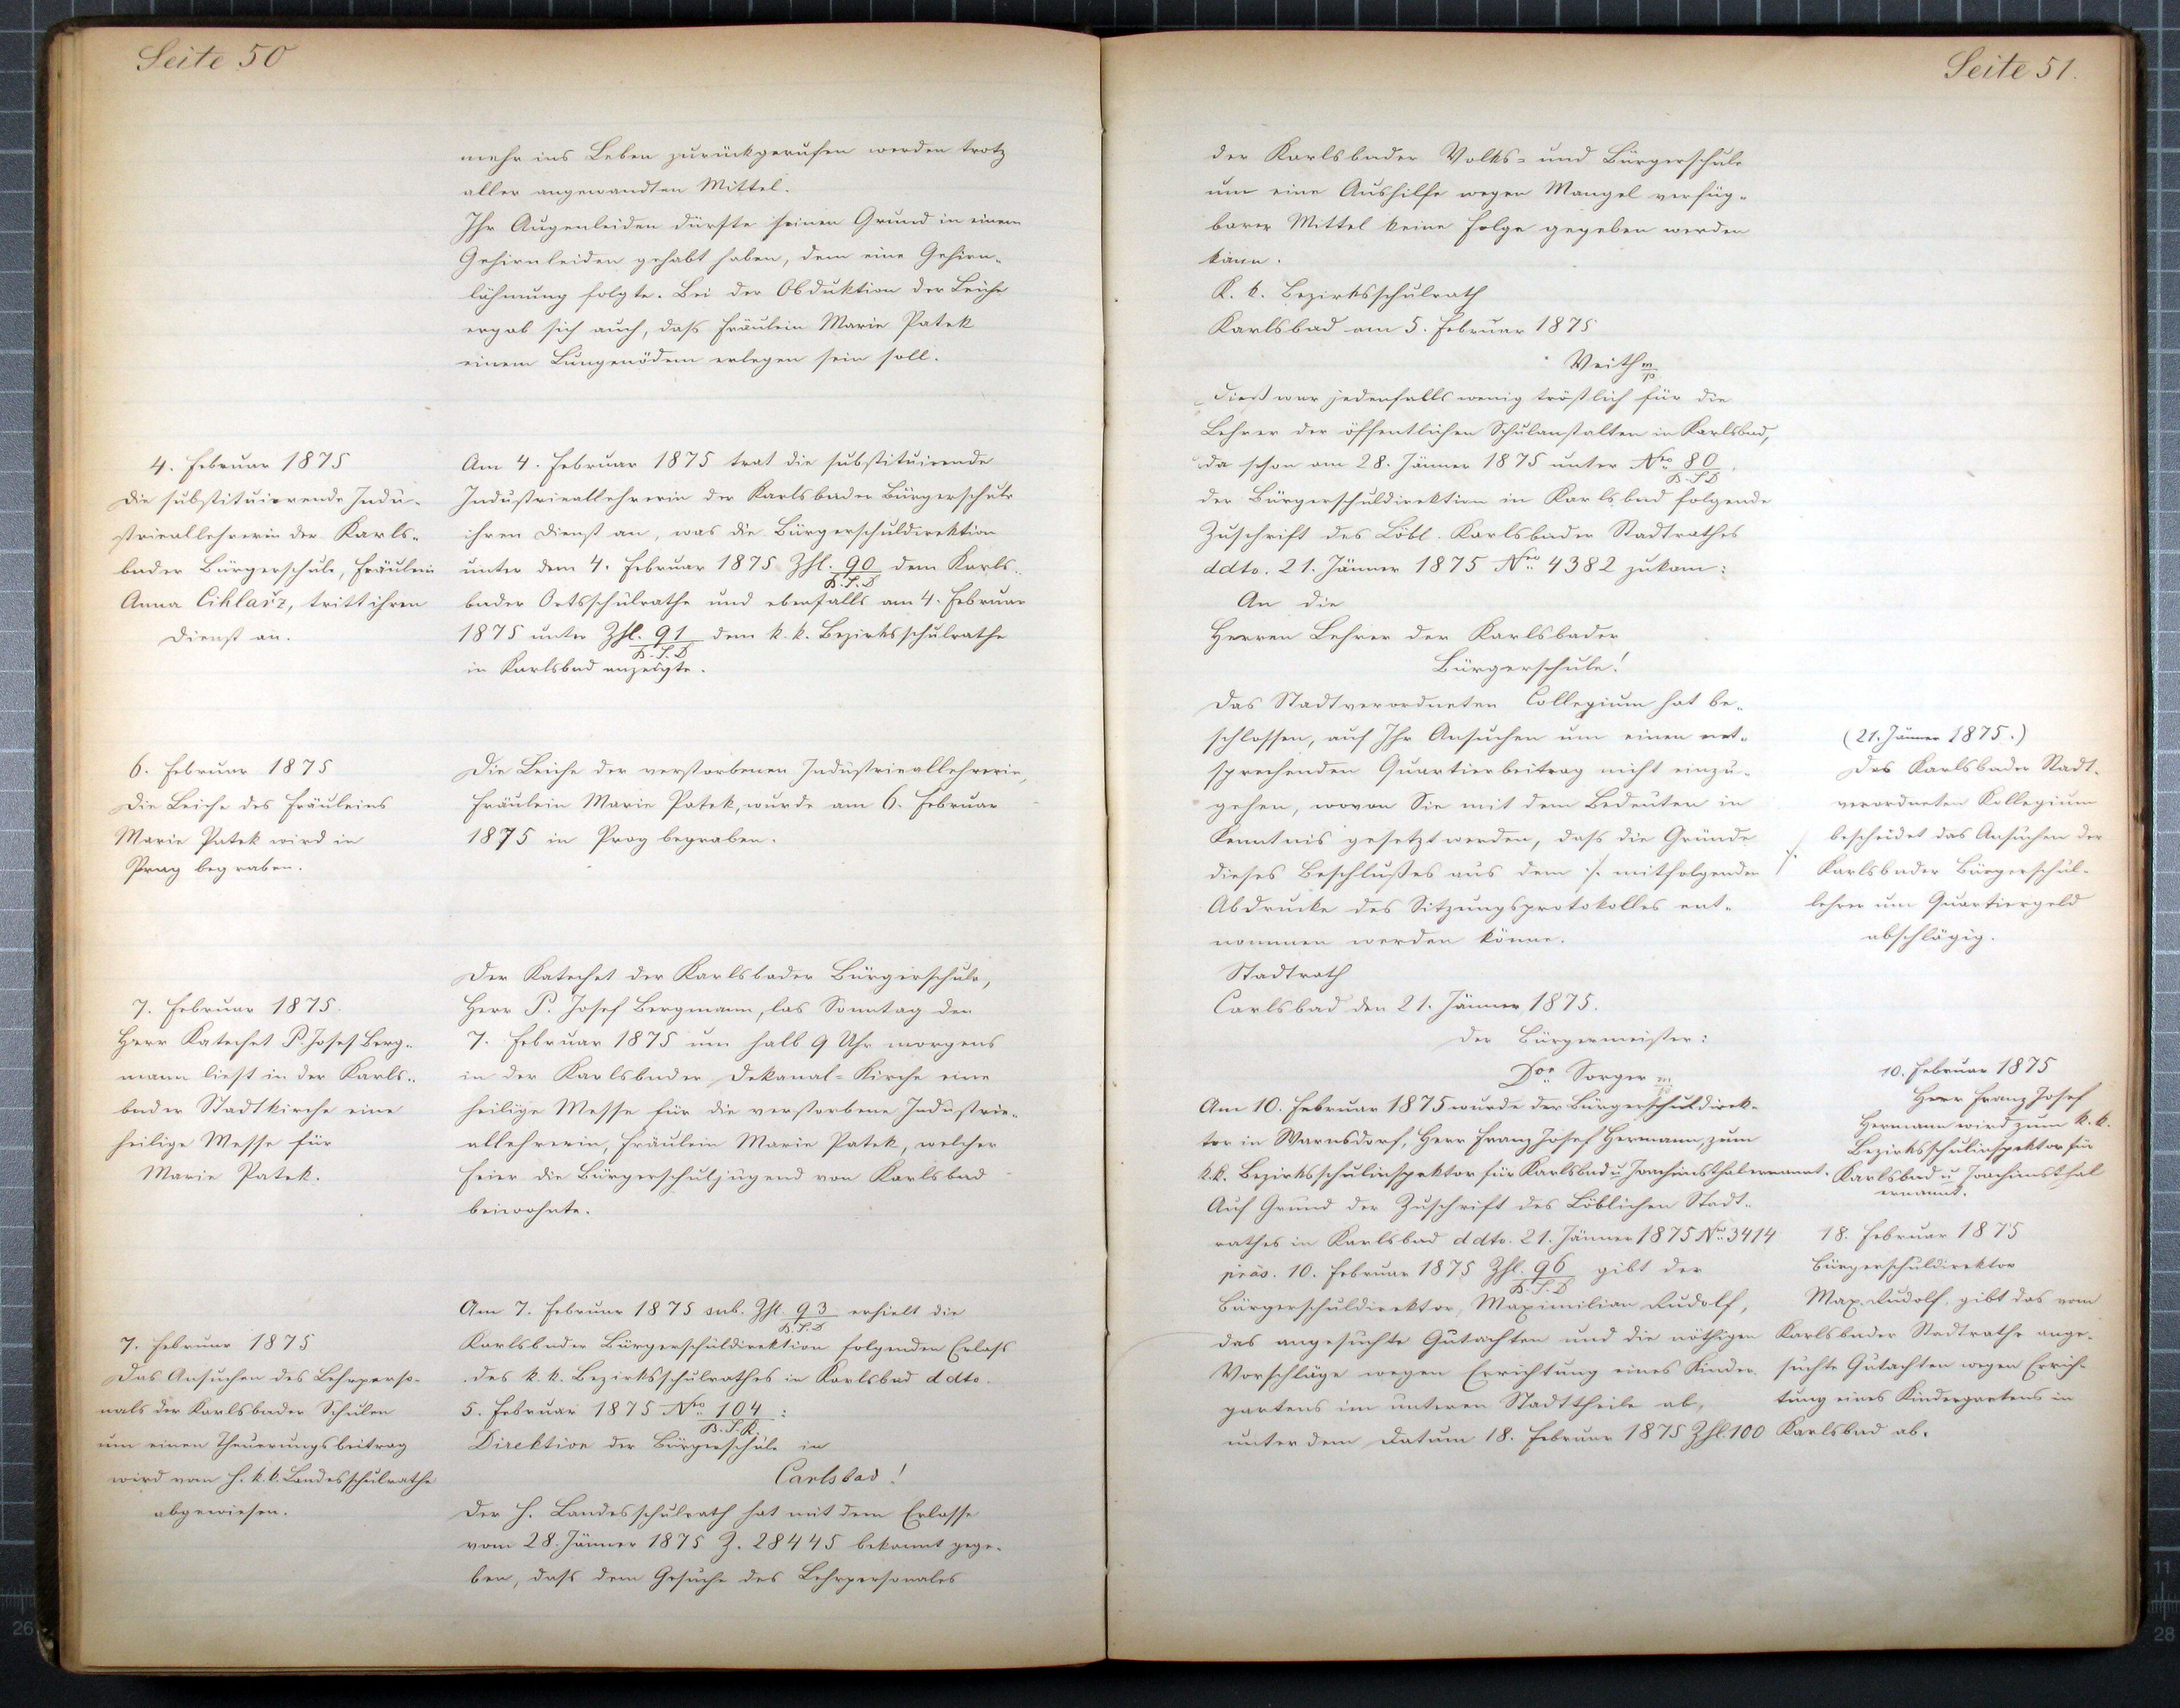 Seite 50
mehr ins Leben zurückgerufen werden trotz
aller angewandten Mittel.
Ihr Augenleiden dürfte seinen Grund in einem
Gehirnleiden gehabt haben, dem eine Gehirn-
lähmung folgte. Bei der Obduktion der Leiche
ergab sich auch, daß Fräulein Marie Patek
einem Lungenödem erlegen sein soll.
4. Februar 1875
Die substituierende Indu-
striallehrerin der Karls-
bader Bürgerschule, Fräulein
Anna Ciklarz, tritt ihren
Dienst an.
Am 4. Februar 1875 trat die substituirende
Industriallehrerin der Karlsbader Bürgerschule
ihren Dienst an, was die Bürgerschuldirektion
unter dem 4. Februar 1875 Zhl. 90 dem Karls-
B.S.D
bader Ortsschulrathe und ebenfalls am 4. Februar
1875 unter Zhl. 91 dem k.k. Bezirksschulrathe
B.S.D
in Karlsbad anzeigte.
6. Februar 1875
Die Leiche des Fräuleins
Marie Patek wird in
Prag begraben.
Die Leiche der verstorbenen Industriallehrerin,
Fräulein Marie Patek, wurde am 6. Februar
1875 in Prag begraben.
7. Februar 1875.
Herr Katechet P. Josef Berg-
mann liest in der Karls-
bader Stadtkirche eine
heilige Messe für
Marie Patek.
Der Katechet der Karlsbader Bürgerschule,
Herr P. Josef Bergmann, las Sonntag den
7. Februar 1875 um halb 9 Uhr morgens
in der Karlsbader Dekanal-Kirche eine
heilige Messe für die verstorbene Industri-
allehrerin, Fräulein Marie Patek, welcher
Feier die Bürgerschuljugend von Karlsbad
beiwohnte.
7. Februar 1875
Das Ansuchen des Lehrperso-
nals der Karlsbader Schulen
um einen Theuerungsbeitrag
wird vom h. k.k. Landesschulrathe
abgewiesen.
Am 7. Februar 1875 sub. Zhl. 93 erhielt die
B.S.D
Karlsbader Bürgerschuldirektion folgenden Erlass
des k.k. Bezirksschulrathes in Karlsbad ddto.
5. Februar 1875 Nro 104 :
B.S.R
Direktion der Bürgerschule in
Carlsbad!
Der h. Landesschulrath hat mit dem Erlasse
vom 28. Jänner 1875 Z. 28445 bekannt gege-
ben, daß dem Gesuche des Lehrpersonales
Seite 51.
der Karlsbader Volks- und Bürgerschule
um eine Aushilfe wegen Mangel verfüg-
barer Mittel keine Folge gegeben werden
kann.
K. k. Bezirksschulrath
Karlsbad am 5. Februar 1875
Veith m/p
Dieß war jedenfalls wenig tröstlich für die
Lehrer der öffentlichen Schulanstalten in Karlsbad,
da schon am 28. Jänner 1875 unter Nro 80
B.S.D
der Bürgerschuldirektion in Karlsbad folgende
Zuschrift des Löbl. Karlsbader Stadtrathes
ddto. 21. Jänner 1875 Nro 4382 zukam:
An die
Herren Lehrer der Karlsbader
Bürgerschule!
Das Stadtverordneten Collegium hat be-
schlossen, auf Ihr Ansuchen um einen ent-
sprechenden Quartierbeitrag nicht einzu-
gehen, wovon Sie mit dem Bedeuten in
Kenntnis gesetzt werden, daß die Gründe
dieses Beschlußes aus dem ./. mitfolgenden ./.
Abdrucke des Sitzungsprotokolles ent-
nommen werden könne.
(21. Jänner 1875.)
Das Karlsbader Stadt-
verordneten Kollegium
bescheidet das Ansuchen der
Karlsbader Bürgerschul-
lehrer um Quartiergeld
abschlägig.
Stadtrath
Carlsbad den 21. Jänner 1875.
Der Bürgermeister:
Dor Sorger m/p
Am 10. Februar 1875 wurde der Bürgerschuldirek-
tor in Warnsdorf, Herr Franz Josef Hermann, zum
k.k. Bezirksschulinspektor für Karlsbad u Joachimsthal ernannt.
10. Februar 1875
Herr Franz Josef
Hermann wird zum k.k.
Bezirksschulinspektor für
Karlsbad u Joachimsthal
ernannt.
Auf Grund der Zuschrift des Löblichen Stadt-
rathes in Karlsbad ddto. 21. Jänner 1875 Nro 3414
präs. 10. Februar 1875 Zhl. 96 gibt der
B.S.D
Bürgerschuldirektor, Maximilian Rudolf,
das angesuchte Gutachten und die nöthigen
Vorschläge wegen Errichtung eines Kinder-
gartens im unteren Stadttheile ab,
unter dem Datum 18. Februar 1875 Zhl. 100
18. Februar 1875
Bürgerschuldirektor
Max. Rudolf, gibt das vom
Karlsbader Stadtrathe ange-
suchte Gutachten wegen Errich-
tung eines Kindergartens in
Karlsbad ab.
26
11
28